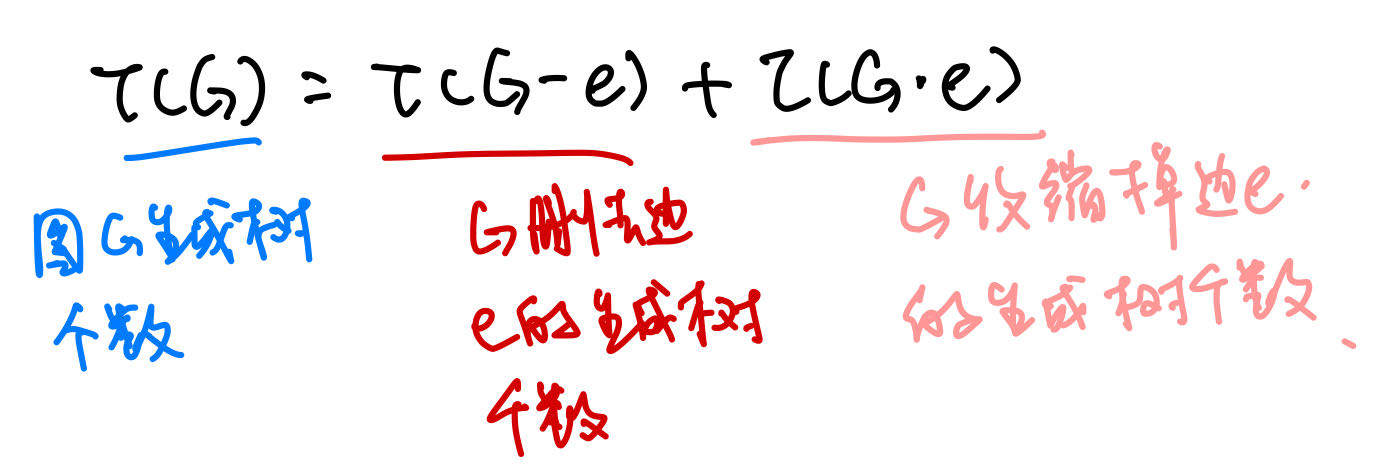 τ(G) = τ(G-e) + τ(G·e)
图G生成树
个数
G删去边
e的生成树
个数
G收缩掉边e.
的生成树个数、